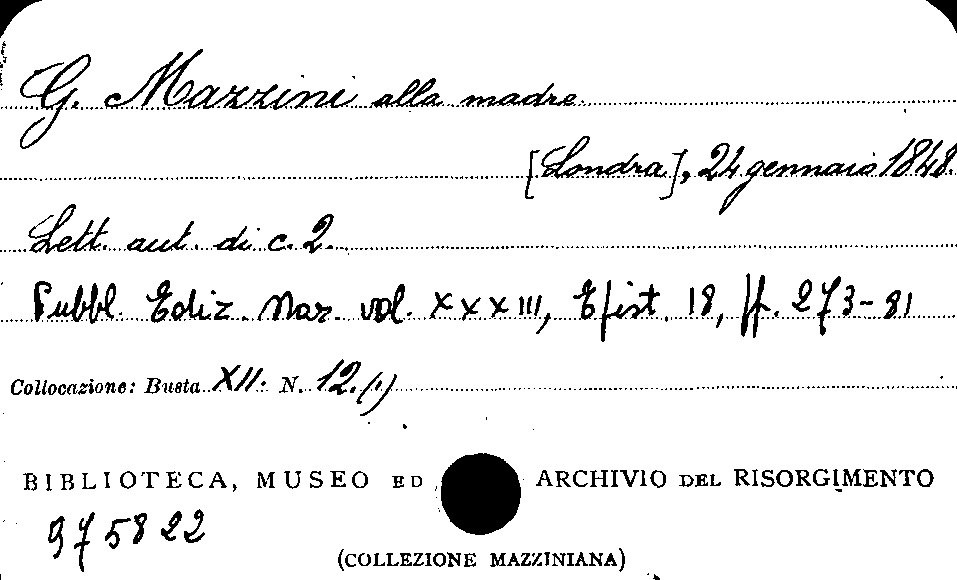 G. Mazzini alla madre
[Londra], 24 gennaio 1848.
Lett. aut. di c. 2.
Pubbl. Ediz. Naz. vol. XXXIII, Epist. 18, pp. 273-81
Collocazione: Busta XII. N. 12. (1)
BIBLIOTECA, MUSEO ED ARCHIVIO DEL RISORGIMENTO
975822
(COLLEZIONE MAZZINIANA)